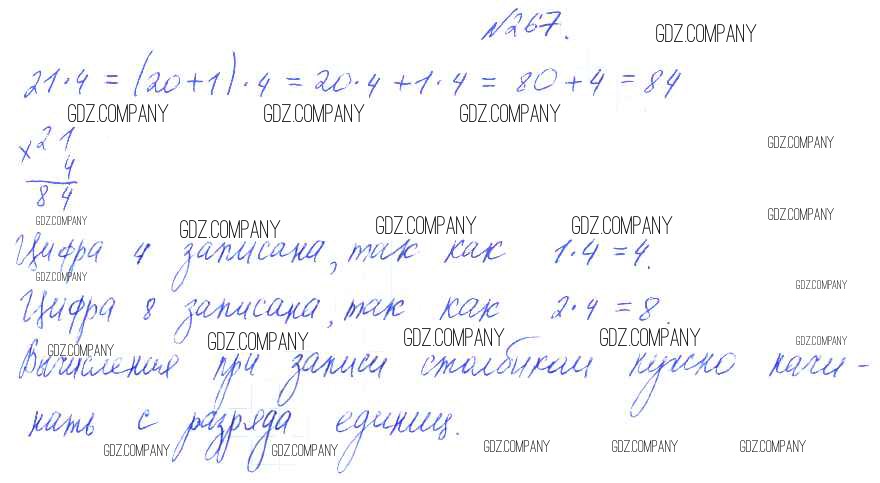 №267. GDZ.COMPANY
21·4 = (20+1)·4 = 20·4+1·4 = 80+4 = 84
GDZ.COMPANY GDZ.COMPANY GDZ.COMPANY
×21 GDZ.COMPANY
4
84
GDZ.COMPANY GDZ.COMPANY GDZ.COMPANY GDZ.COMPANY GDZ.COMPANY
Цифра 4 записана, так как 1·4=4.
GDZ.COMPANY GDZ.COMPANY
Цифра 8 записана, так как 2·4=8.
GDZ.COMPANY GDZ.COMPANY GDZ.COMPANY GDZ.COMPANY GDZ.COMPANY
Вычисления при записи столбиком нужно начи-
нать с разряда единиц.
GDZ.COMPANY GDZ.COMPANY GDZ.COMPANY GDZ.COMPANY GDZ.COMPANY